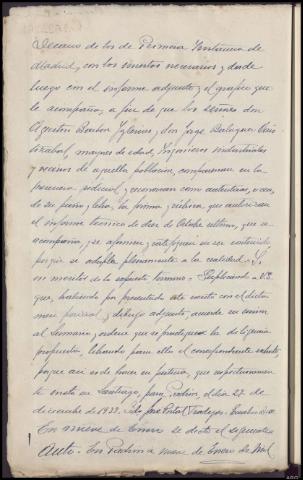 Decano de los de Primera Instancia de
Madrid, con los insertos necesarios y desde
luego con el informe adjunto y el gráfico que
le acompaña, a fin de que los señores don
Agustin y don Jorge
mayores de edad, Ingenieros industriales
y vecinos de aquella población, comparezcan en la
presencia judicial y reconozcan como auténticas, o sea,
de su puño y letra, la firma y rúbrica que autorizan
el informe técnico de diez de Octubre último, que se
acompaña, y se afirmen y ratifiquen en su contenido
porque se adapta plenamente a la realidad.
en méritos de lo expuesto termino = Suplicando a V.S.
que, habiendo por presentado este escrito con el dicta-
men pericial y dibujo adjunto, acuerde su unión
al Sumario y ordene que se produzca la diligencia
propuesta, librando para ello el correspondiente exhorto,
porque así es de hacer en justicia, que respetuosamente
te insto en Santiago, para Padrón, el día 27 de
diciembre de 1933. José
En nueve de Enero se dictó el siguiente
Auto. = En Padrón a nueve de Enero de mil